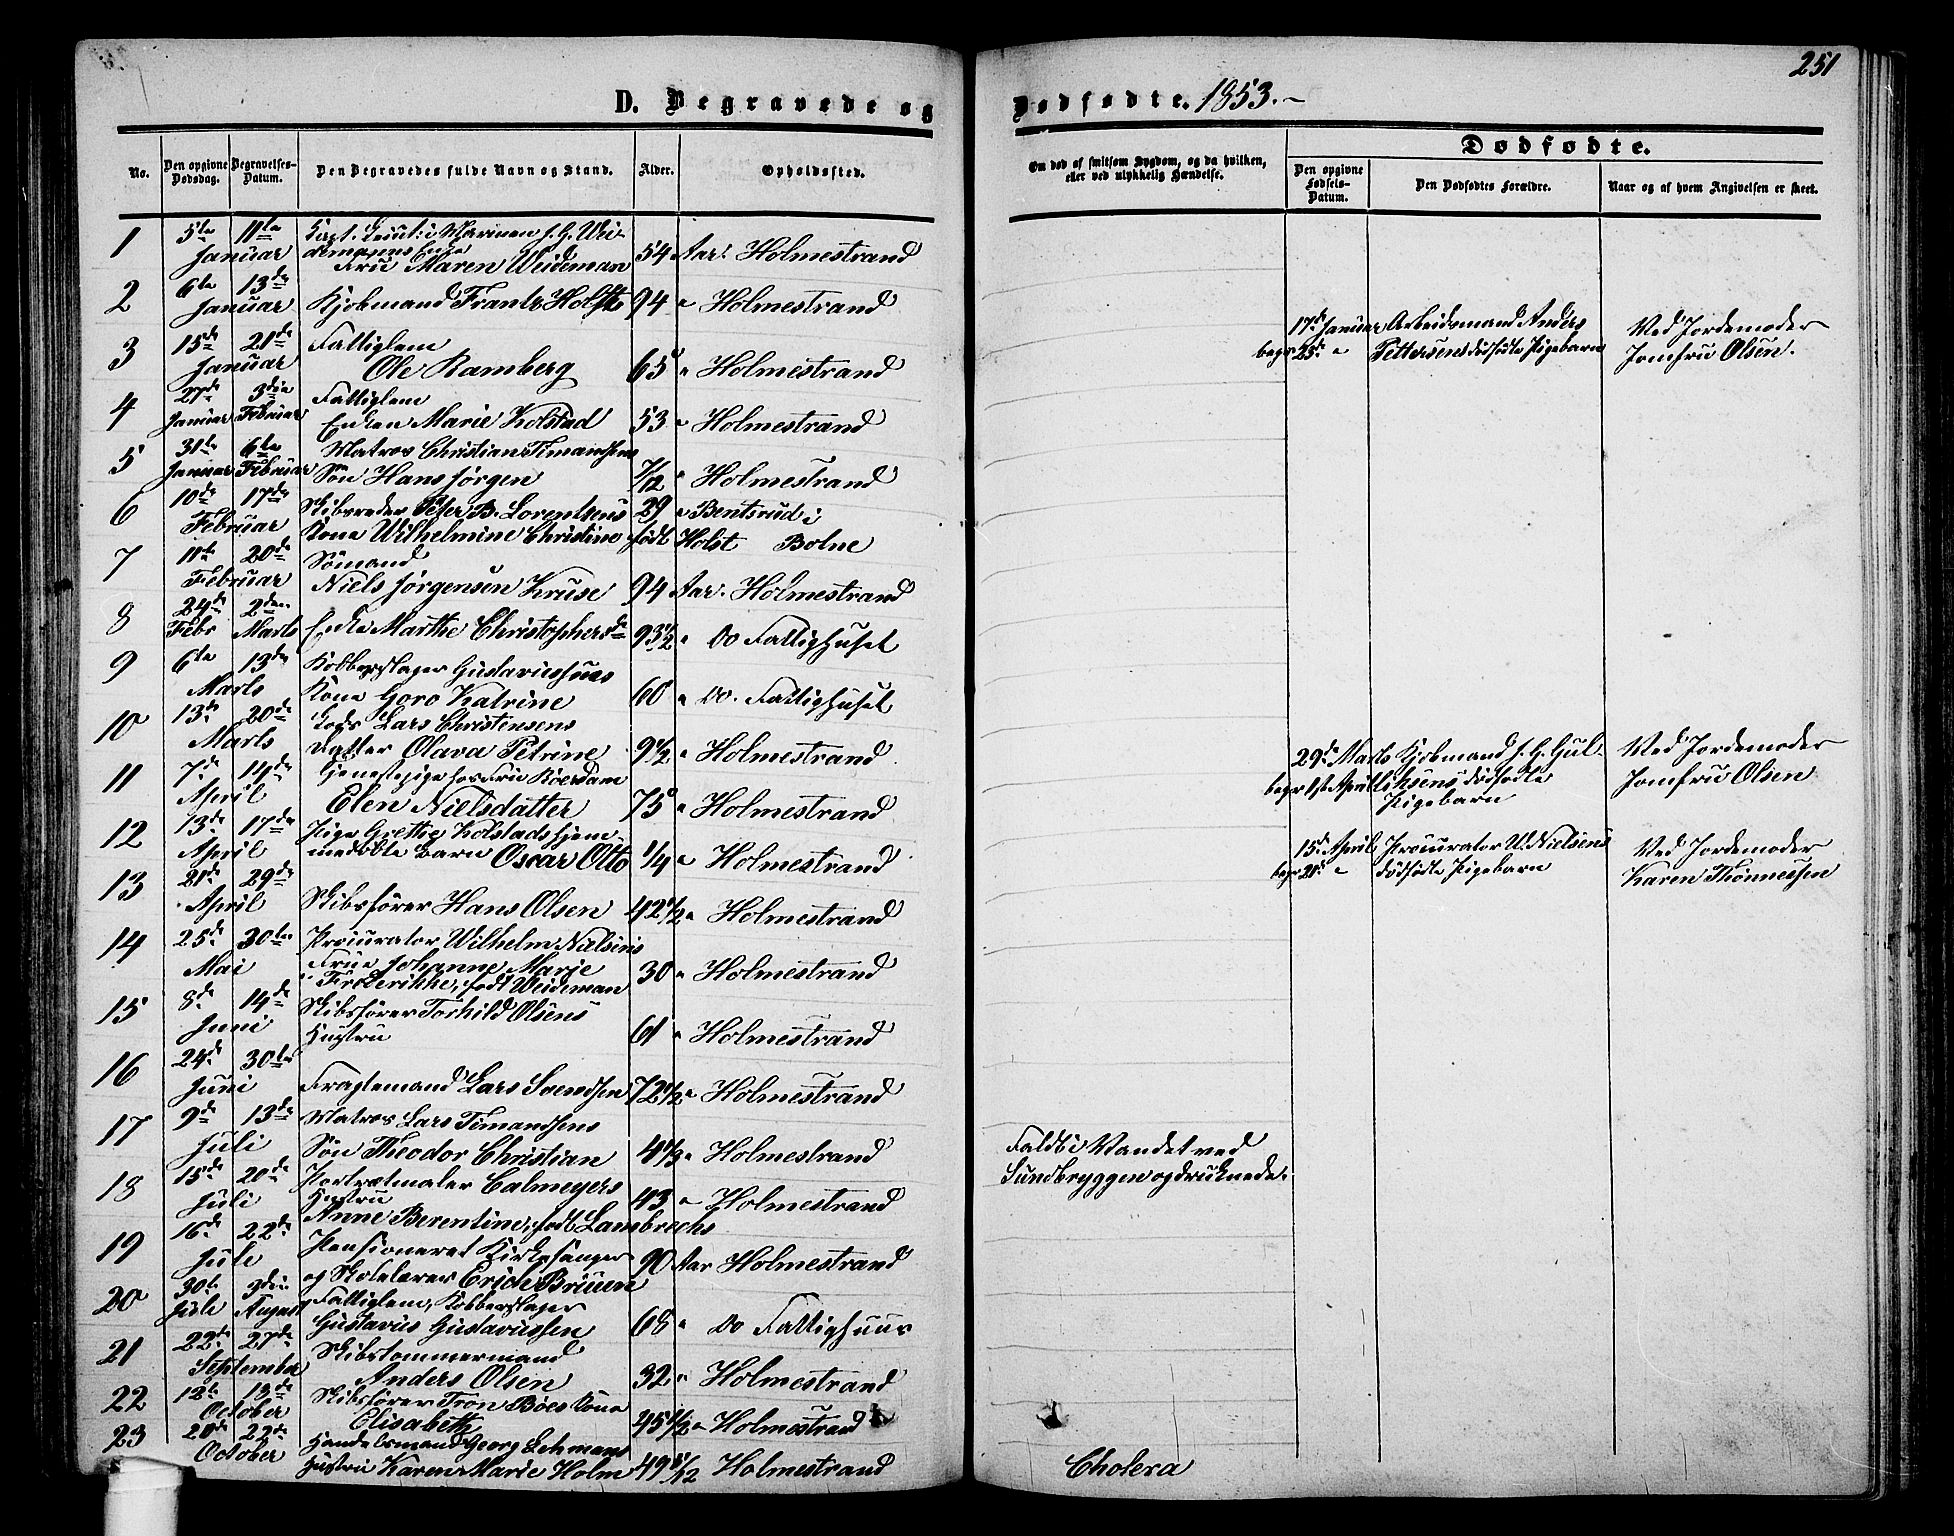 251
D. Begravede og Dødfødte. 1853.
No.
Den opgivne Dødsdag.
Begravelses-Datum.
Den Begravedes fulde Navn og Stand.
Alder.
Opholdssted.
Om død af smitsom Sygdom, og da hvilken, eller ved ulykkelig Hændelse.
Dødfødte.
Den opgivne Fødsels-Datum.
Den Dødfødtes Forældre.
Naar og af hvem Angivelsen er skeet.
1 5te 11te Capt. Lieut: i Marinen J. G. Wei-
Januar demanns Enke
Frue Maren Weideman 54 Aar. Holmestrand
2 6te 13de
Januar Kjøbmand Frantz Holst 94 " Holmestrand
3 15de 21de Fattiglem
Januar Ole Ramberg 65 " Holmestrand
4 27de 3die Fattiglem
Januar Februar Enken Marie Kolstad 53 " Holmestrand
5 31te 6te Matros Christian Timandsens
Januar Februar Søn Hans Jørgen 7/12 " Holmestrand
6 10de 17de Skibsreder Peter B. Lorentsens 29 " Bentsrud i
Februar Kone Wilhelmine Christine født Holst Botne
7 11te 20de Sømand
Februar Niels Jørgensen Kruse 94 Aar. Holmestrand
8 24de 2den
Febr Marts Enke Marthe Christophersd. 93 1/2 " Do Fattighuset
9 6te 13de Kobberslager Gustavussens
Marts Kone Goro Katrine 60 " Do. Fattighuset
10 13de 20de Lods Lars Christensens
Marts Datter Olava Petrine 9 1/2 " Holmestrand
11 7de 14de Tjenestepige hos Frue Roerdam
April Elen Nielsdatter 75 " Holmestrand
12 13de 17de Pige Grethe Kolstads hjem-
April medøbte Barn Oscar Otto 1/4 " Holmestrand
13 21de 29de
April Skibsfører Hans Olsen 42 1/2 " Holmestrand
14 25de 30te Procurator Wilhelm Nielsens
Mai Frue Johanne Marie
Frederikke, født Weideman 30 " Holmestrand
15 8de 14de Skibsfører Torkild Olsens
Juni Hustru 61 " Holmestrand
16 24de 30te
Juni Fragtemand Lars Svendsen 72 1/2 " Holmestrand
17 9de 13de Matros Lars Timandsens
Juli Søn Theodor Christian 4 1/3 " Holmestrand
Faldt i Vandet ved
Sundbryggen og druknede.
18 15de 20de Portrætmaler Calmeyers
Juli Hustru 43 " Holmestrand
Anne Berentine, født Lambrechs
19 16de 22de Pensioneret Kirkesanger
Juli og Skolelærer Erich Bruun 90 Aar Holmestrand
20 30te 3die Fattiglem, Kobberslager
Juli August Gustavus Gustavussen 68 " Do Fattighuus
21 22de 27de Skibstømmermand
September Anders Olsen 32 " Holmestrand
22 12te 13de Skibsfører Tron Bøes Kone
October Elisabeth 45 1/2 " Holmestrand
23 20de 22de Handelsmand Georg Lehmans
October Hustru Karen Marie Holm 49 Holmestrand
Cholera
17de Januar Arbeidsmand Anders Ved Jordemoder
begr 25de " Pettersens dødfødte Pigebarn Jomfru Olsen.
29de Marts Kjøbmand J. G. Gul- Ved Jordemoder
begr 1ste April liksens dødfødte Jomfru Olsen
Pigebarn
15de April Procurator W. Nielsens Ved Jordemoder
begr " dødfødte Pigebarn Karen Thønnessen